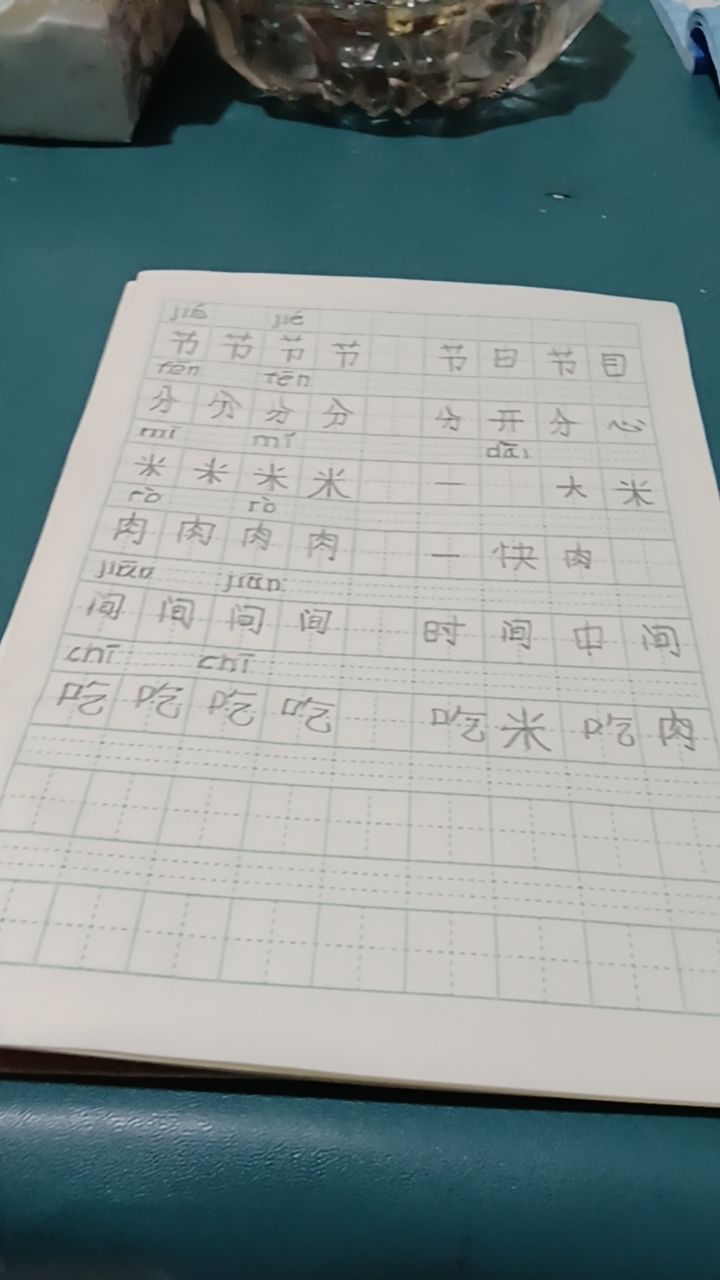 jié jié
节 节 节 节 节 日 节 目
fēn fēn
分 分 分 分 分 开 分 心
mǐ mǐ dāi
米 米 米 米 一 大 米
rò rò
肉 肉 肉 肉 一 快 肉
jiān jiān
间 间 间 间 时 间 中 间
chī chī
吃 吃 吃 吃 吃 米 吃 肉